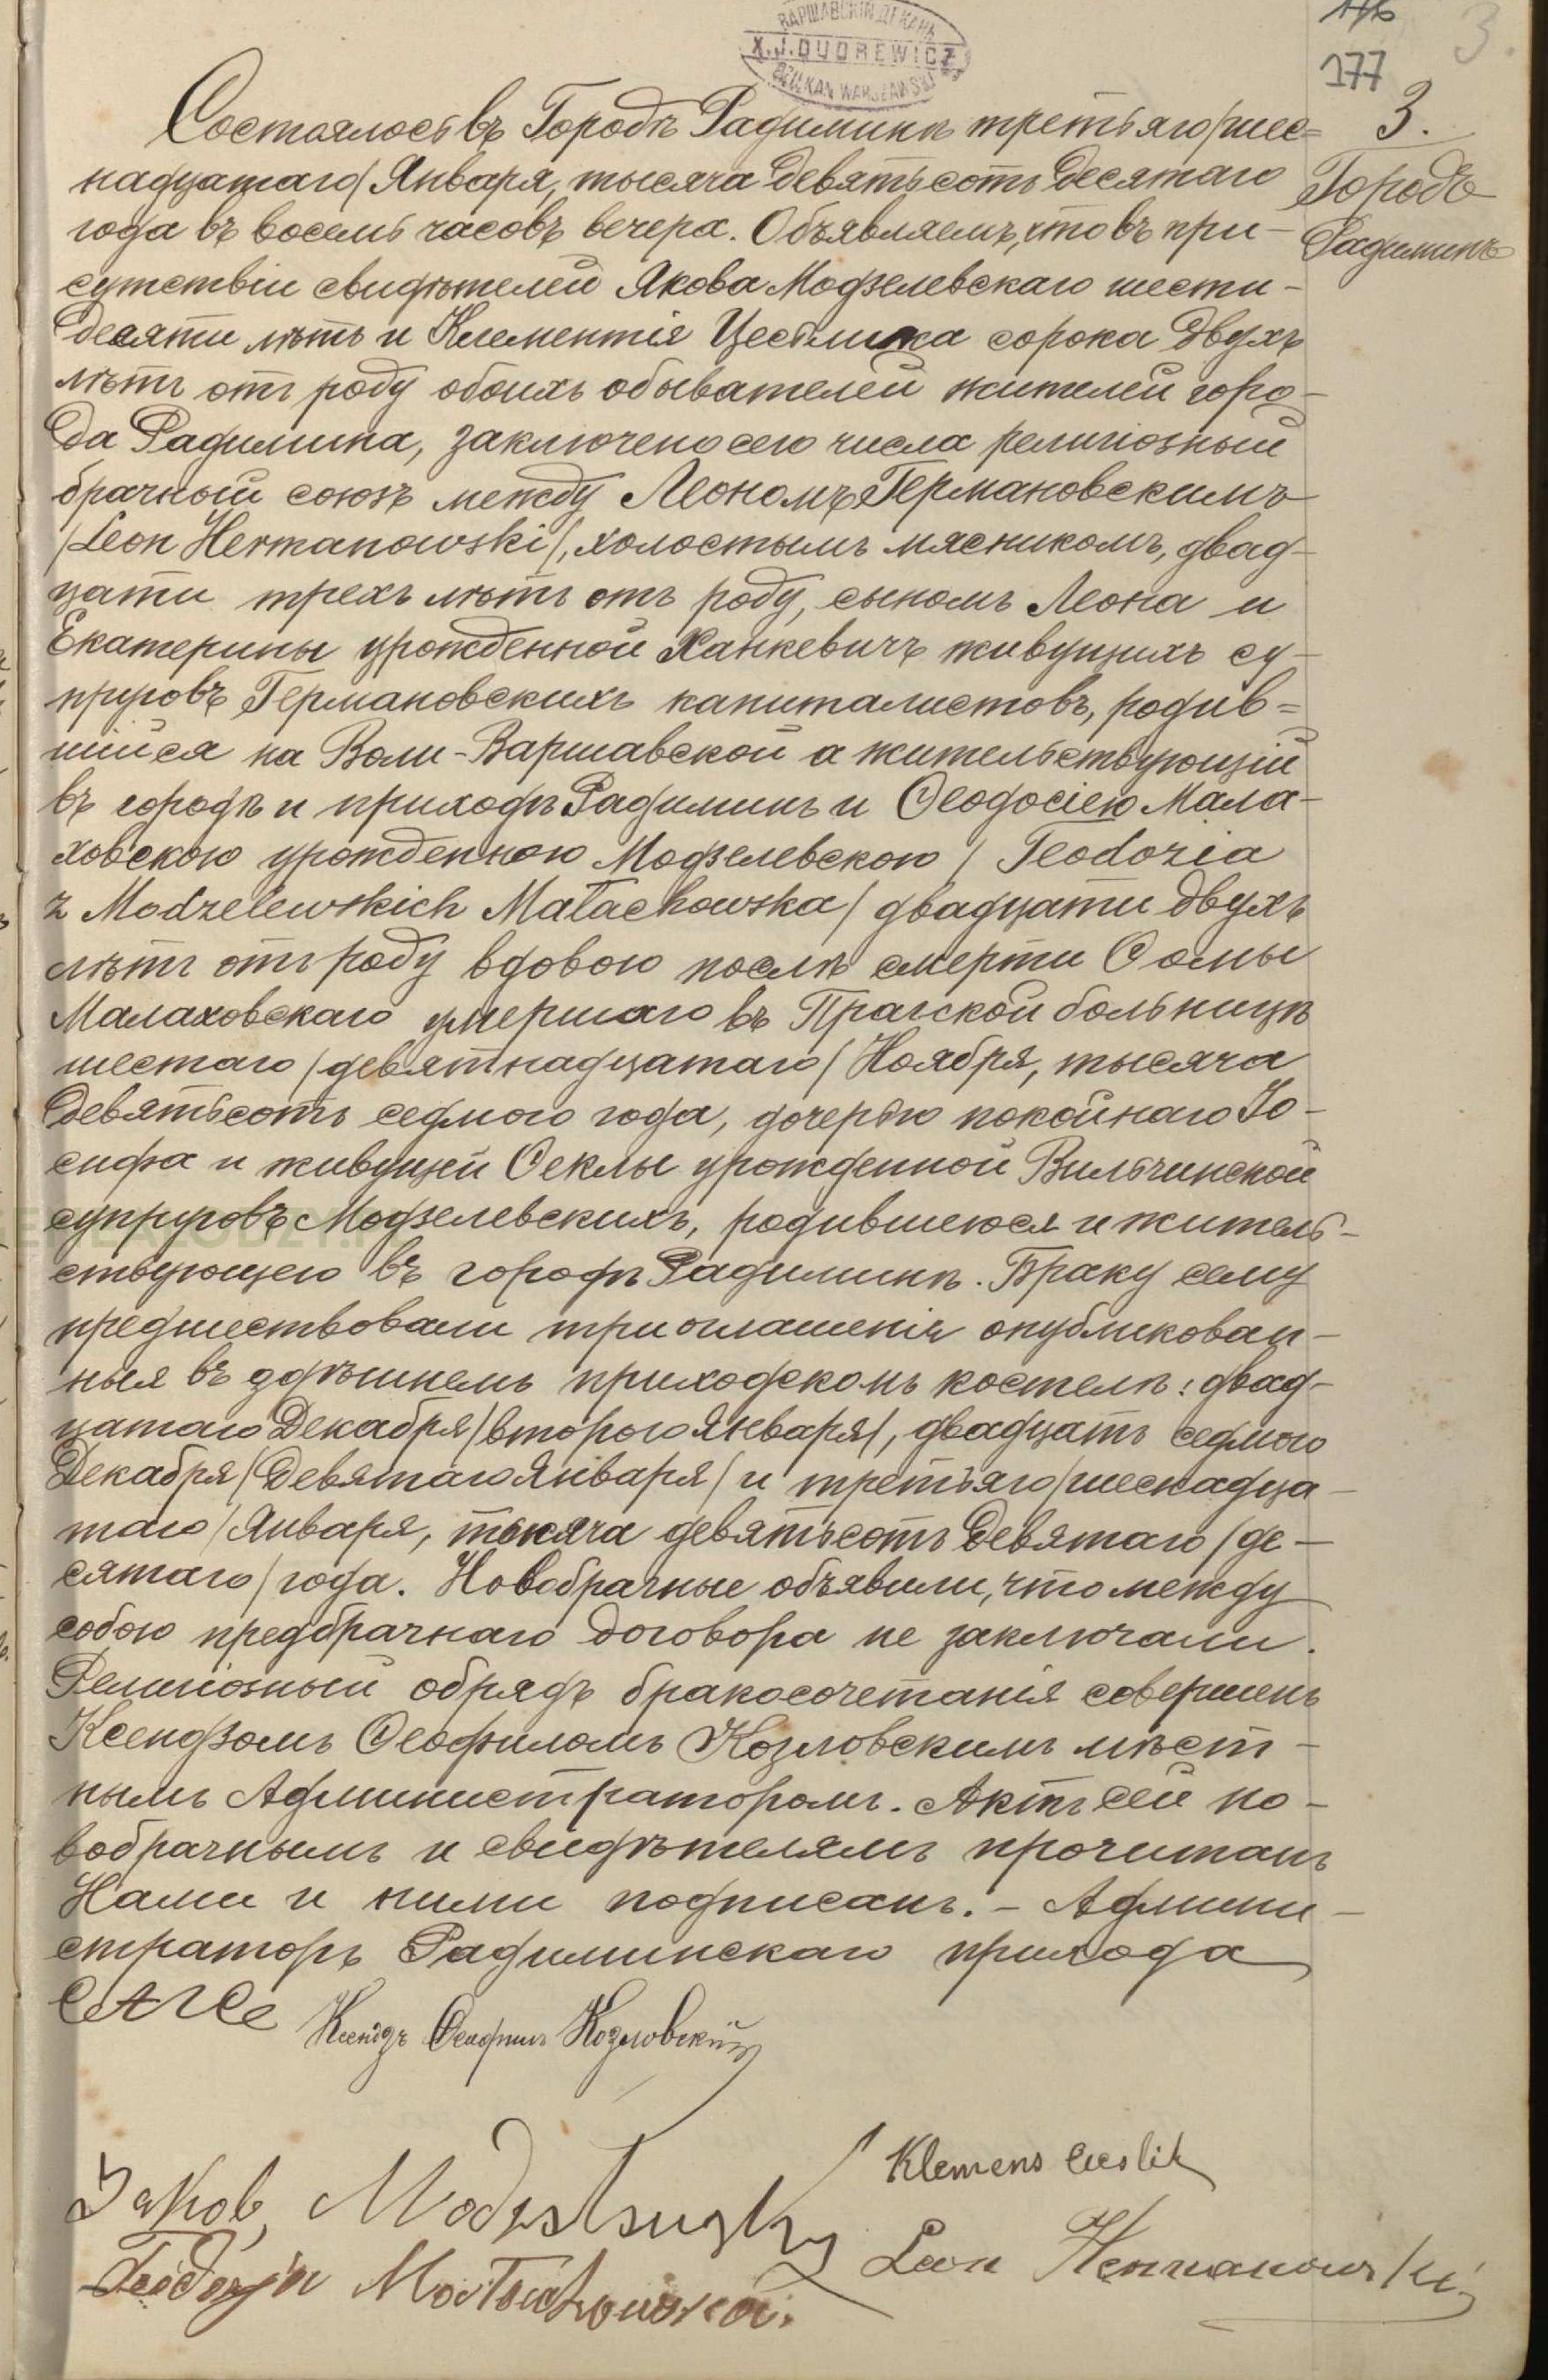 ВАРШАВСКІЙ ДЕКАНЪ
X. J. DUDREWICZ
DZIEKAN WARSZAWSKI
177
3.
3.
Городъ
Радиминъ
Состоялось въ Городѣ Радиминѣ третьяго/шес=
надцатаго/ Января, тысяча девятьсотъ десятаго
года въ восемь часовъ вечера. Объявляемъ, что въ при-
сутствіи свидѣтелей Якова Модзелевскаго шести-
десяти лѣтъ и Клементія Цеслика сорока двухъ
лѣтъ отъ роду обоихъ обывателей жителей горо-
да Радимина, заключено сего числа религіозный
брачный союзъ между Леономъ Германовскимъ
/Leon Hermanowski/, холостымъ мясникомъ, двад-
цати трехъ лѣтъ отъ роду, сыномъ Леона и
Екатерины урожденной Ханкевичъ живущихъ су-
пруговъ Германовскихъ капиталистовъ, родив=
шійся на Воли-Варшавской а жительствующій
въ городѣ и приходѣ Радиминъ и Ѳеодосіею Мала-
ховскою урожденною Модзелевскою / Teodozia
z Modzelewskich Małachowska/ двадцати двухъ
лѣтъ отъ роду вдовою послѣ смерти Ѳомы
Малаховскаго умершаго въ Пражской больницѣ
шестаго /девятнадцатаго/ Ноября, тысяча
девятьсотъ седмого года, дочерью покойнаго Іо-
сифа и живущей Ѳеклы урожденной Вильчинской
супруговъ Модзелевскихъ, родившеюся и житель-
ствующею въ городѣ Радиминѣ. Браку сему
предшествовали три оглашенія опубликован-
ныя въ здѣшнемъ приходскомъ костелѣ: двад-
цатаго Декабря/второго Января/, двадцать седмого
Декабря/девятаго Января/ и третьяго/шеснадца-
таго/ Января, тысяча девятьсотъ девятаго /де-
сятаго/ года. Новобрачные объявили, что между
собою предбрачнаго договора не заключали.
Религіозный обрядъ бракосочетанія совершенъ
Ксендзомъ Ѳеофиломъ Козловскимъ мѣст-
нымъ Администраторомъ. Актъ сей но-
вобрачнымъ и свидѣтелямъ прочитанъ
Нами и ними подписанъ. – Админи-
страторъ Радиминскаго прихода
Ксендзъ Ѳеофилъ Козловскій
Klemens Cieslik
Jakob Modzelewsky
Leon Hermanowski
Teodozja Małachowska.